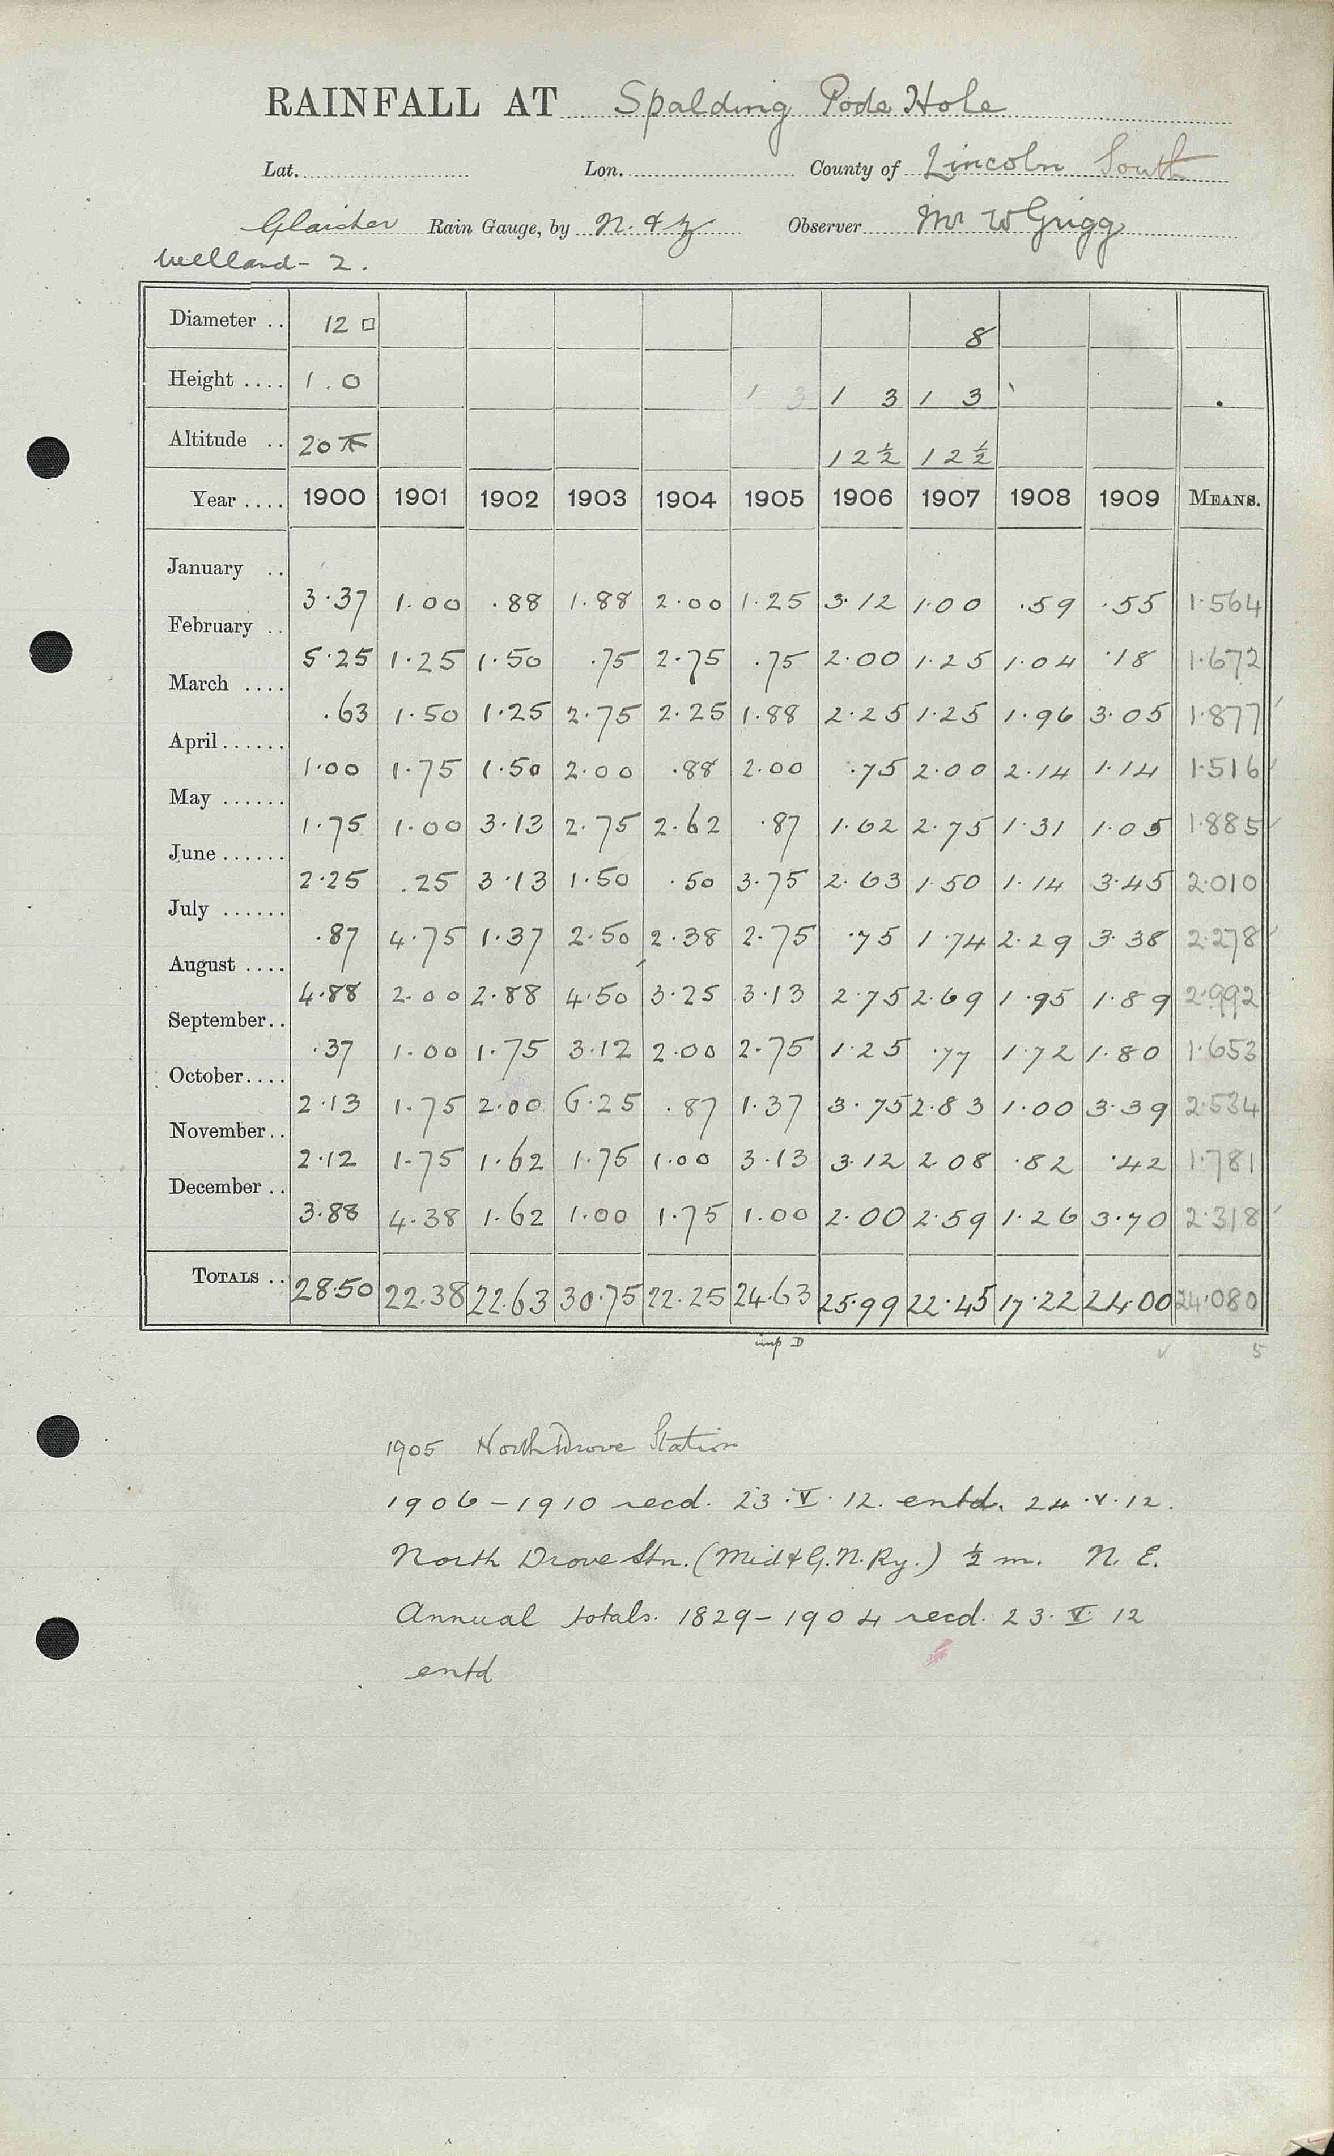 RAINFALL AT Spalding Pode Hole
Lat. Lon. County of Lincoln South
Glaisher Rain Gauge, by N. & Z Observer Mr W Grigg
Welland - 2.
Diameter .. 12 □ 8
Height .... 1.0 1 3 1 3 1 3
Altitude .. 20 ft 12½ 12½
Year .... 1900 1901 1902 1903 1904 1905 1906 1907 1908 1909 MEANS.
January .. 3.37 1.00 .88 1.88 2.00 1.25 3.12 1.00 .59 .55 1.564
February .. 5.25 1.25 1.50 .75 2.75 .75 2.00 1.25 1.04 .18 1.672
March .... .63 1.50 1.25 2.75 2.25 1.88 2.25 1.25 1.96 3.05 1.877
April ...... 1.00 1.75 1.50 2.00 .88 2.00 .75 2.00 2.14 1.14 1.516
May ...... 1.75 1.00 3.13 2.75 2.62 .87 1.62 2.75 1.31 1.05 1.885
June ...... 2.25 .25 3.13 1.50 .50 3.75 2.63 1.50 1.14 3.45 2.010
July ...... .87 4.75 1.37 2.50 2.38 2.75 .75 1.74 2.29 3.38 2.278
August .... 4.88 2.00 2.88 4.50 3.25 3.13 2.75 2.69 1.95 1.89 2.992
September.. .37 1.00 1.75 3.12 2.00 2.75 1.25 .77 1.72 1.80 1.653
October.... 2.13 1.75 2.00 6.25 .87 1.37 3.75 2.83 1.00 3.39 2.534
November.. 2.12 1.75 1.62 1.75 1.00 3.13 3.12 2.08 .82 .42 1.781
December .. 3.88 4.38 1.62 1.00 1.75 1.00 2.00 2.59 1.26 3.70 2.318
TOTALS .. 28.50 22.38 22.63 30.75 22.25 24.63 25.99 22.45 17.22 24.00 24.080
imp D 5
1905 North Drove Station
1906-1910 recd. 23.V.12. entd. 24.V.12.
North Drove Stn. (Mid & G.N.Ry.) ½ m. N.E.
Annual totals. 1829-1904 recd. 23.V.12
entd